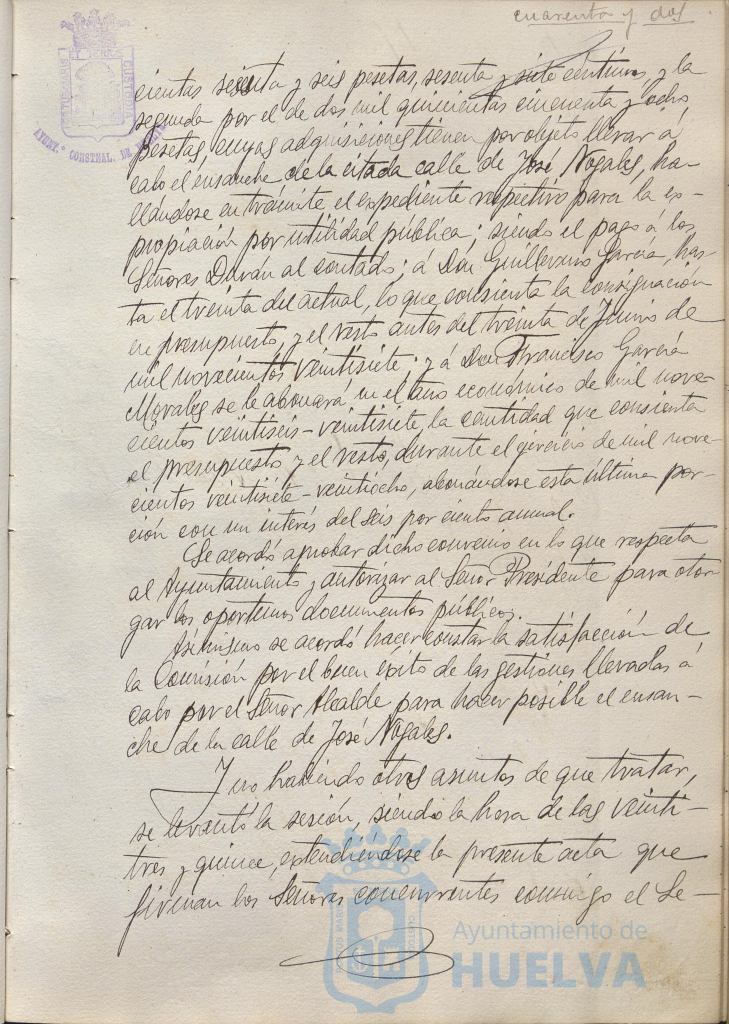 cuarenta y dos
AYUNT.º CONSTNAL. DE HUELVA
cientas sesenta y seis pesetas, sesenta y siete céntimos, y la
segunda por el de dos mil quinientas cincuenta y ocho
pesetas, cuyas adquisiciones tienen por objeto llevar á
cabo el ensanche de la citada calle de José Nogales, ha-
llándose en trámite el expediente respectivo para la ex-
propiación por utilidad pública; siendo el pago á los
Señores Durán al contado; á Don Guillermo García, has-
ta el treinta del actual, lo que consienta la consignación
en presupuesto, y el resto antes del treinta de Junio de
mil novecientos veintisiete; y á Don Francisco García
Morales se le abonará en el año económico de mil nove-
cientos veintiseis-veintisiete, la cantidad que consienta
el presupuesto y el resto, durante el ejercicio de mil nove-
cientos veintisiete-veintiocho, abonándose esta última por-
ción con un interés del seis por ciento anual.
Se acordó aprobar dicho convenio en lo que respecta
al Ayuntamiento y autorizar al Señor Presidente para otor-
gar los oportunos documentos públicos.
Asimismo se acordó hacer constar la satisfacción de
la Comisión por el buen éxito de las gestiones llevadas á
cabo por el Señor Alcalde para hacer posible el ensan-
che de la calle de José Nogales.
Y no habiendo otros asuntos de que tratar,
se levantó la sesión, siendo la hora de las veinti-
tres y quince, extendiéndose la presente acta que
firman los Señores concurrentes conmigo el Se-
Ayuntamiento de
HUELVA